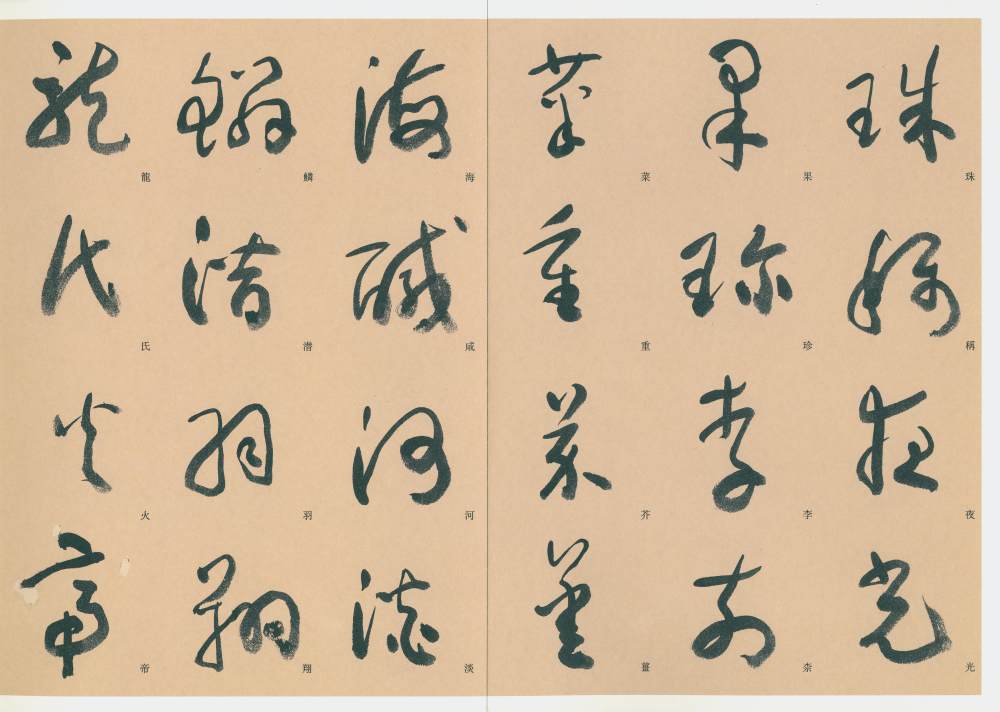 珠稱夜光
果珍李柰
菜重芥薑
海咸河淡
鱗潛羽翔
龍師火帝